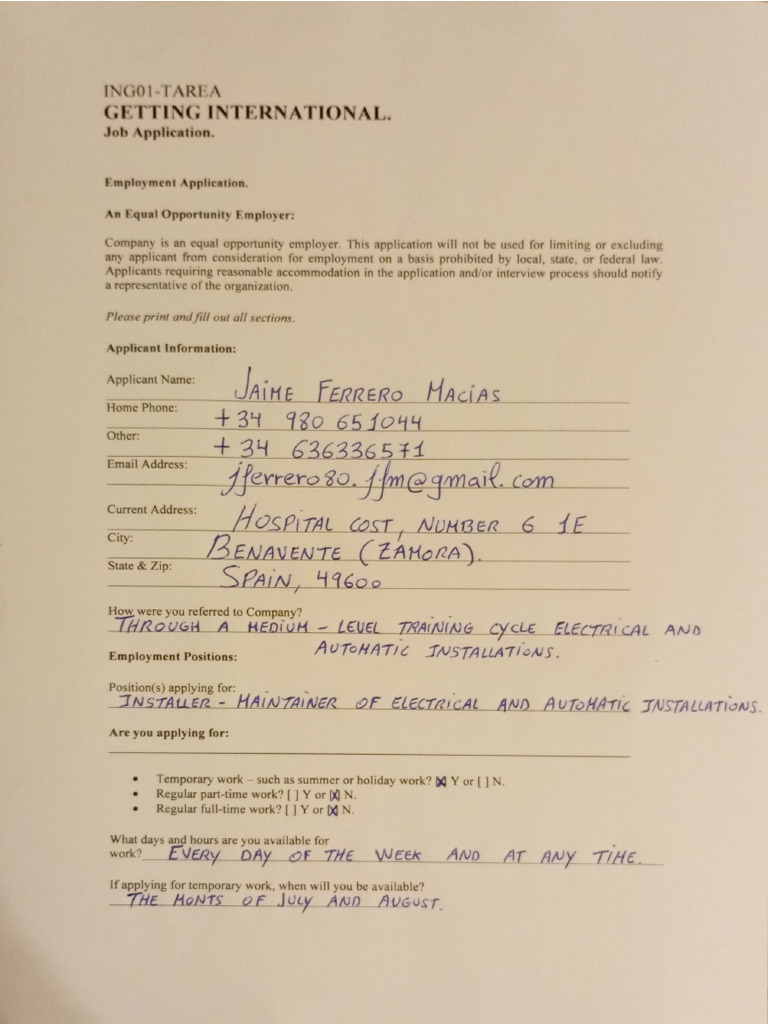 ING01-TAREA
GETTING INTERNATIONAL.
Job Application.
Employment Application.
An Equal Opportunity Employer:
Company is an equal opportunity employer. This application will not be used for limiting or excluding
any applicant from consideration for employment on a basis prohibited by local, state, or federal law.
Applicants requiring reasonable accommodation in the application and/or interview process should notify
a representative of the organization.
Please print and fill out all sections.
Applicant Information:
Applicant Name: JAIME FERRERO MACIAS
Home Phone: +34 980 651044
Other: +34 636336571
Email Address: jferrero80.jfm@gmail.com
Current Address: HOSPITAL COST, NUMBER 6 1E
City: BENAVENTE (ZAMORA).
State & Zip: SPAIN, 49600
How were you referred to Company?
THROUGH A MEDIUM - LEVEL TRAINING CYCLE ELECTRICAL AND
AUTOMATIC INSTALLATIONS.
Employment Positions:
Position(s) applying for:
INSTALLER - MAINTAINER OF ELECTRICAL AND AUTOMATIC INSTALLATIONS.
Are you applying for:
• Temporary work – such as summer or holiday work? [X] Y or [ ] N.
• Regular part-time work? [ ] Y or [X] N.
• Regular full-time work? [ ] Y or [X] N.
What days and hours are you available for
work? EVERY DAY OF THE WEEK AND AT ANY TIME.
If applying for temporary work, when will you be available?
THE MONTS OF JULY AND AUGUST.